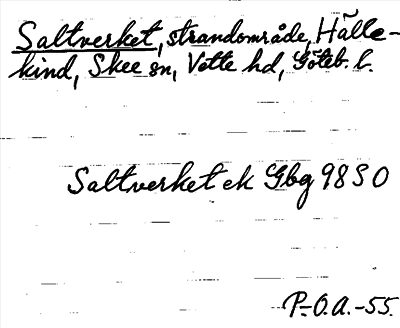 Saltverket, strandområde, Hälle-
kind, Skee sn, Vette hd, Göteb. l.
Saltverket ek Gbg 98 S O
P.-O.A.-55.